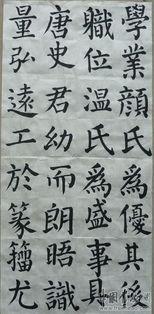 學業顔氏爲優其係
職位温氏爲盛事具
唐史君幼而朗晤識
量弘遠工於篆籀尤